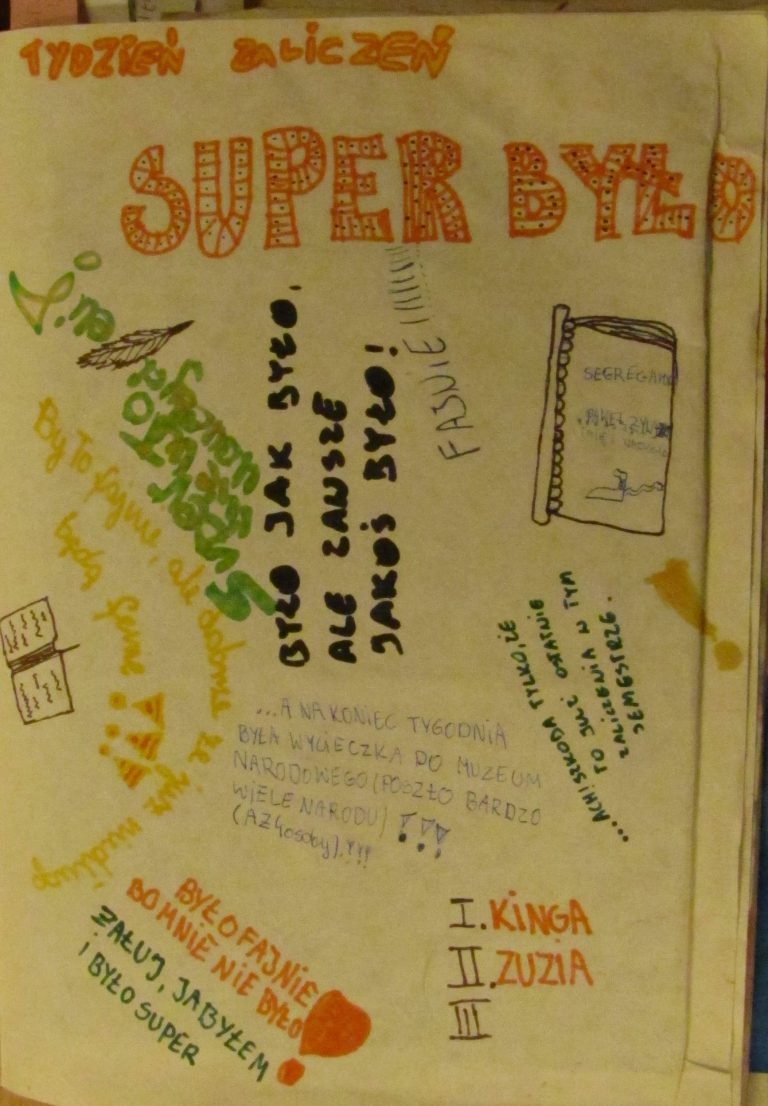 TYDZIEŃ ZALICZEŃ
SUPER BYŁO
BYŁO JAK BYŁO,
ALE ZAWSZE
JAKOŚ BYŁO!
FAJNIE!!!!!!!!
SEGREGATOR
PAWEŁ
IMIĘ I NAZWISKO
Super
Było fajnie, ale dobrze że już niedługo
będą ferie!!!
...ACH! SZKODA TYLKO, ŻE
TO JUŻ OSTATNIE
ZALICZENIA W TYM
SEMESTRZE.
...A NA KONIEC TYGODNIA
BYŁA WYCIECZKA DO MUZEUM
NARODOWEGO (POSZŁO BARDZO
WIELE NARODU) !!!
(AŻ 4 osoby).!!!
BYŁO FAJNIE
BO MNIE NIE BYŁO!
ŻAŁUJ, JA BYŁEM
I BYŁO SUPER
I. KINGA
II. ZUZIA
III